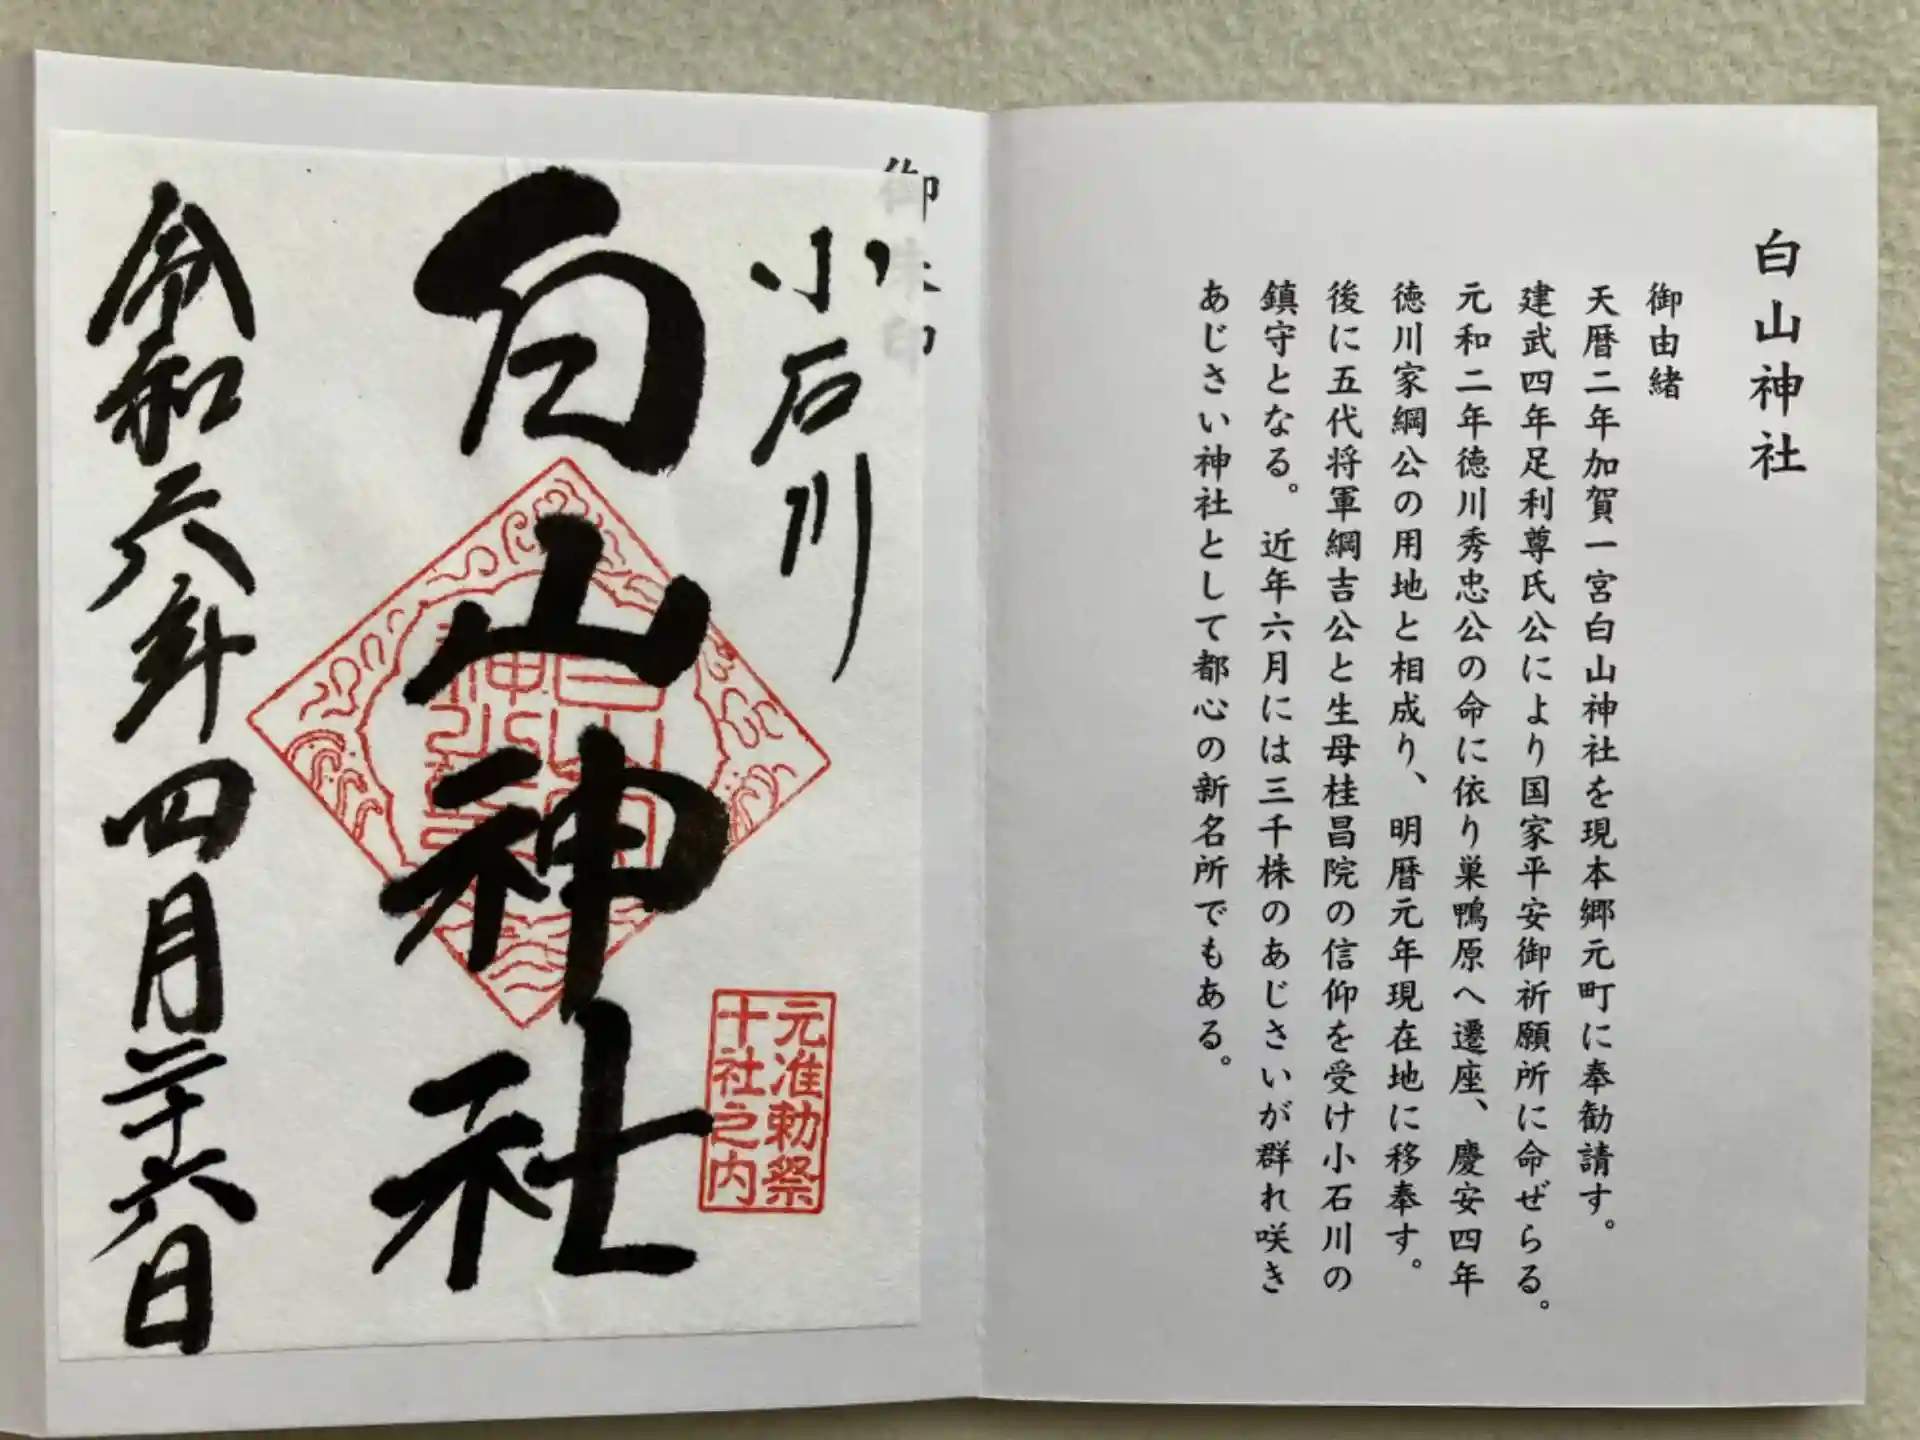 白山神社
御由緒
天暦二年加賀一宮白山神社を現本郷元町に奉勧請す。
建武四年足利尊氏公により国家平安御祈願所に命ぜらる。
元和二年徳川秀忠公の命に依り巣鴨原へ遷座、慶安四年
徳川家綱公の用地と相成り、明暦元年現在地に移奉す。
後に五代将軍綱吉公と生母桂昌院の信仰を受け小石川の
鎮守となる。近年六月には三千株のあじさいが群れ咲き
あじさい神社として都心の新名所でもある。
御朱印
小石川
元准勅祭
十社之内
白山神社
令和六年四月二十六日